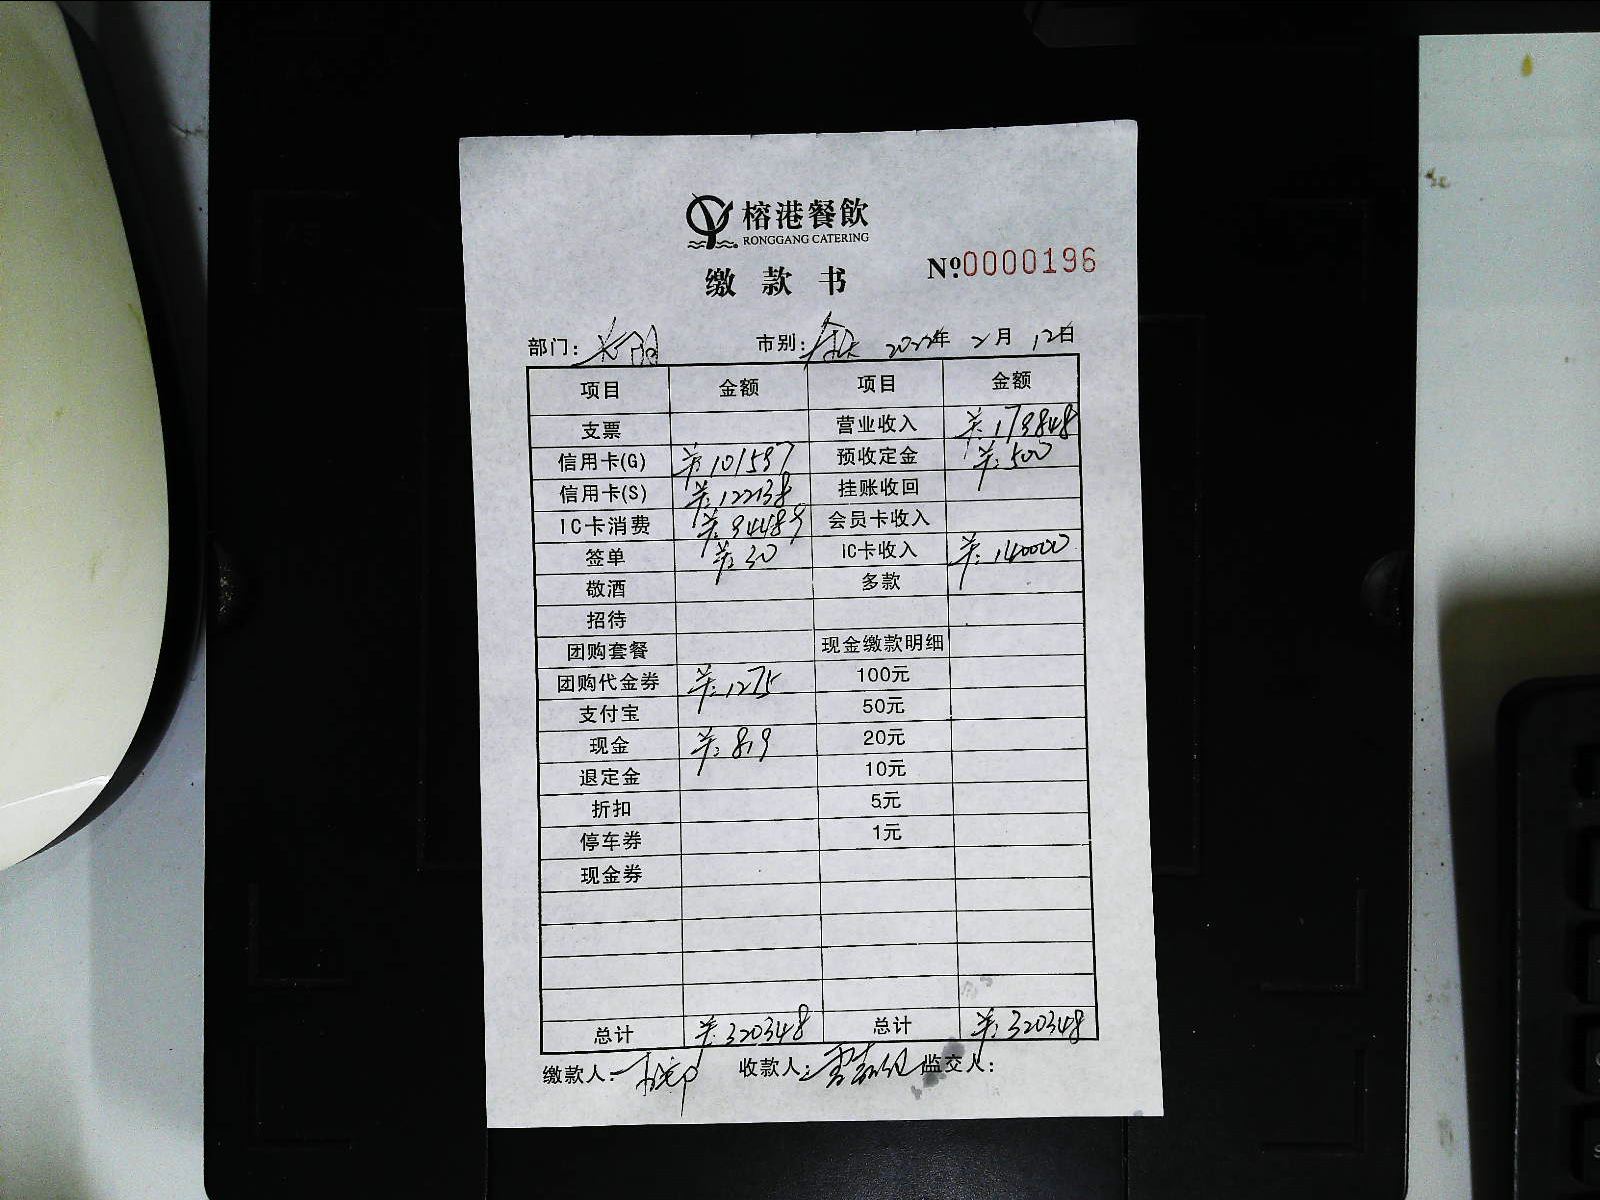 榕港餐飲
RONGGANG CATERING
缴款书 №0000196
部门: 市别: 2022年 2月 12日
项目 金额 项目 金额
支票 营业收入 羊:179848
信用卡(G) 羊:101597 预收定金 羊:500
信用卡(S) 羊:122138 挂账收回
IC卡消费 羊:94489 会员卡收入
签单 羊:30 IC卡收入 羊:140000
敬酒 多款
招待
团购套餐 现金缴款明细
团购代金券 羊:1275 100元
支付宝 50元
现金 羊:819 20元
退定金 10元
折扣 5元
停车券 1元
现金券
总计 羊:320348 总计 羊:320348
缴款人: 收款人: 监交人: